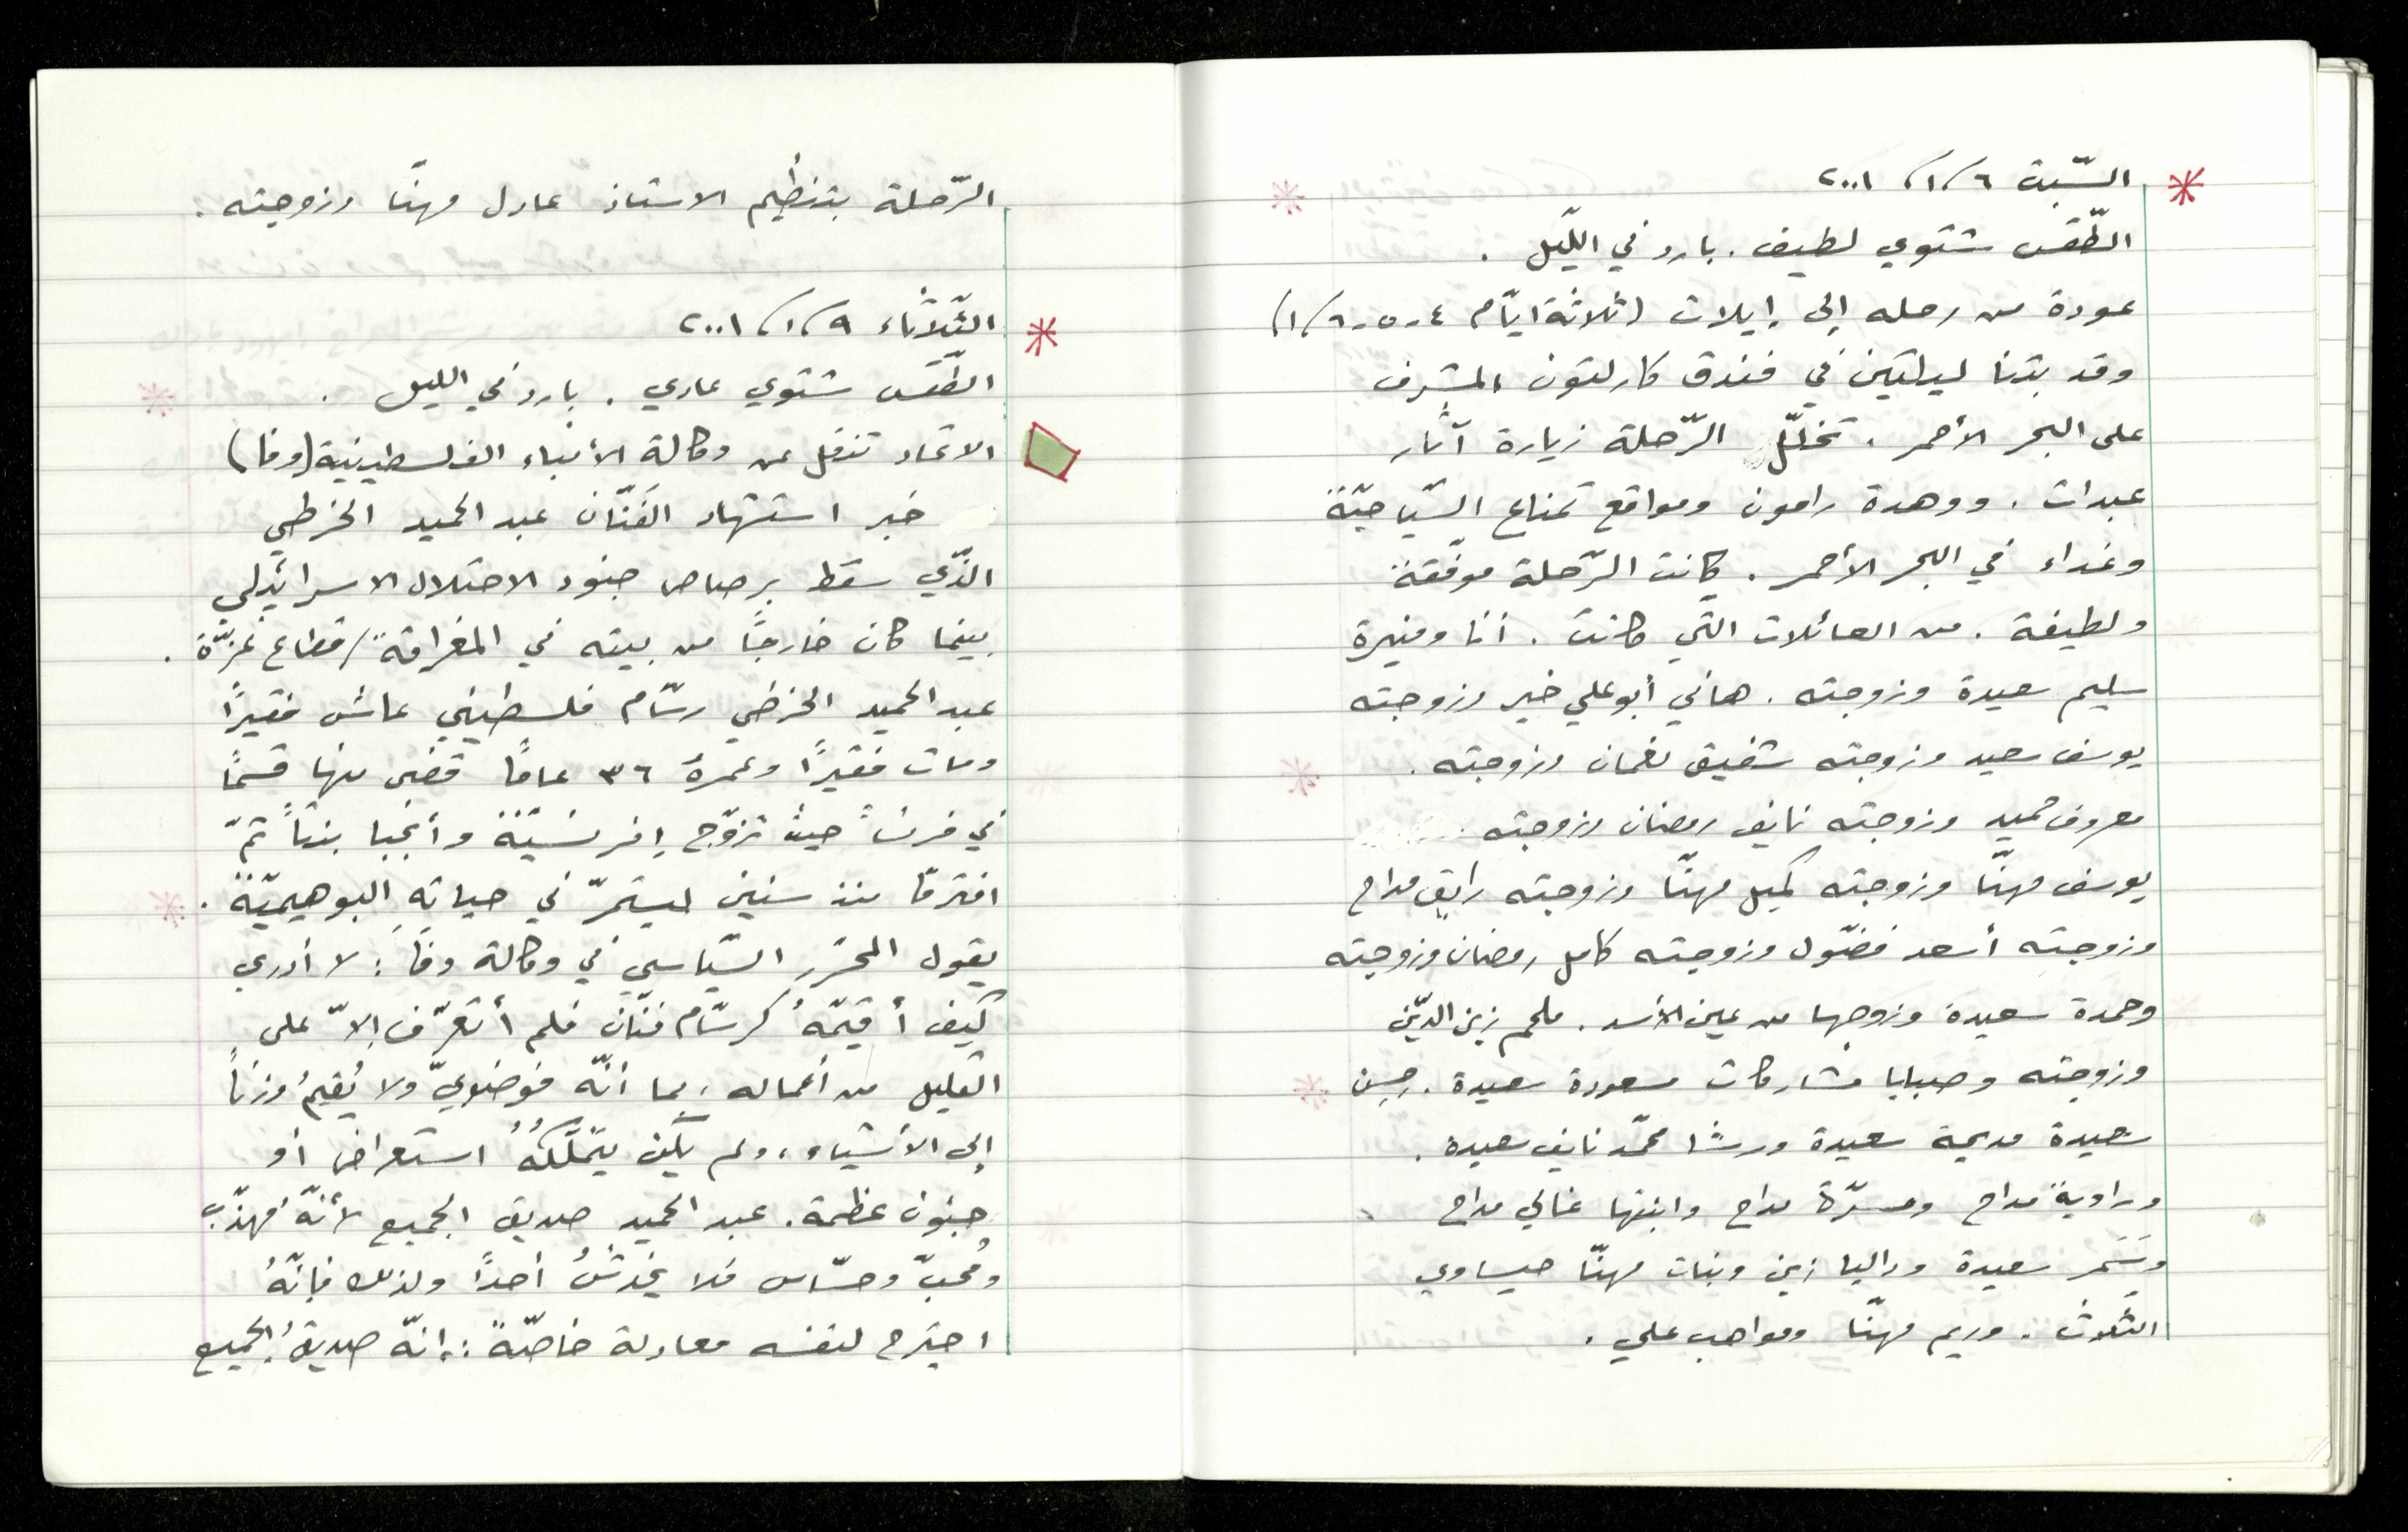 السّبت ٦/١/٢٠٠١
الطّقس شتوي لطيف. بارد في اللّيل.
عودة من رحله إلى إيلات (ثلاثة ايّام ٤-٥-٦/١)
وقد بتنا ليلتين في فندق كارلتون المشرف
على البحر الأحمر. تخلّل الرّحلة زيارة آثار
عبدات. ووهدة رامون ومواقع تمناع السّياحيّة
وغداء في البحر الأحمر. كانت الرّحلة موفّقة
ولطيفة. من العائلات التّي كانت. أنا ومنيرة
سليم سعيدة وزوجته. هاني أبو علي خير وزوجته
يوسف سعيد وزوجته شفيق نعمان وزوجته.
معروف حميد وزوجته نايف رمضان وزوجته
يوسف مهنّا وزوجته كميل مهنّا وزوجته رايق مداح
وزوجته أسعد فضّول وزوجته كامل رمضان وزوجته
وحمدة سعيدة وزوجها من عين الأسد. ملحم زين الدّين
وزوجته وصبايا مشاركات مسعودة سعيدة.
سعيدة مديحة سعيدة ورشا محمّد نايف سعيدة.
وراوية مداح ومسرّة مداح وابنتها غالي مداح
وسَمَر سعيدة وداليا زين وبنات مهنّا عيساوي
الثّلاث. وريم مهنّا ومواهب علي.
الرّحلة بتنظيم الاستاذ عادل مهنّا وزوجته.
الثّلاثاء ٩/١/٢٠٠١
الطّقس شتوي عادي. بارد في الليل.
الاتحاد تنقل عن وكالة الأنباء الفلسطينية (وفا)
خبر استشهاد الفَنّان عبد الحميد الخرطي
الذّي سقط برصاص جنود الاحتلال الاسرائيلي
بينما كان خارجًا من بيته في المغراقة/قطاع غزّة.
عبد الحميد الخرطي رسّام فلسطيني عاش فقيرًا
ومات فقيرًا وعمرهُ ٣٦ عامًا قضى منها قسمًا
في فرنسا حيث تزوّج إفرنسيّة وأنجبا بنتًا ثمّ
افترقا منذ سنين ليستمرّ في حياته البوهيميّة.
يقول المحرّر السّياسي في وكالة وفا: لا أدري
كيف أقيّمهُ كرسّام فنّان فلم أتعرّف إلاّ على
القليل من أعماله، بما أنّه فوضويّ ولا يُقيمُ وزنًا
إلى الأشياء، ولم يكن يتملّكهُ استعراض أو
جنون عظمة. عبد الحميد صديق الجميع لأنّهُ مهذّب
ومُحبّ وحسّاس فلا يخدشُ أحدًا ولذلك فإنّهُ
اجترح لنفسه معادلة خاصّةً: إنّه صديقُ الجميع